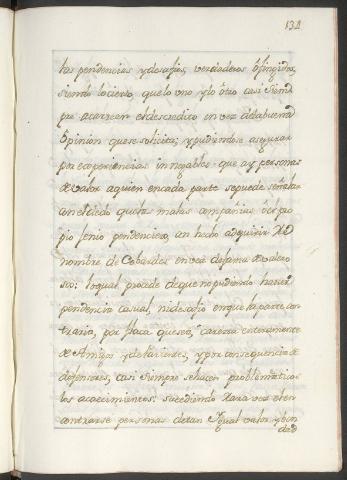 132
tas pendencias y desafios, verdaderos ò fingidos,
siendo lo cierto, que lo uno y lo ôtro casi siem
pre acarrean el descredito en vez dela buena
Opinion que se solicita; y pudiendose asegurar
por experiencias innegables que ay personas
de valor a quien en cada parte se puede señalar
con el dedo que las malas compañias, ô el pro
pio genio pendenciero, an hecho adquirir
nombre de Cobardes en vez de fama de valero
sos: lo qual procede de que no pudiendo haver
pendencia casual, ni desafio en que la parte con
traria, por flaca que sea, carezca enteramente
de Amigos y de Parientes, y por consequencia de
defensores, casi siempre se hacen problematicos
los acaecimientos: sucediendo rara vez el en
contrarse personas de tan Igual valor y bon
dad